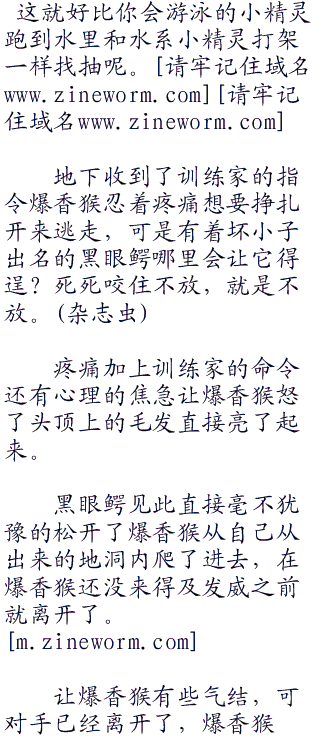 这就好比你会游泳的小精灵
跑到水里和水系小精灵打架
一样找抽呢。[请牢记住域名
www.zineworm.com][请牢记
住域名www.zineworm.com]
地下收到了训练家的指
令爆香猴忍着疼痛想要挣扎
开来逃走，可是有着坏小子
出名的黑眼鳄哪里会让它得
逞？死死咬住不放，就是不
放。(杂志虫)
疼痛加上训练家的命令
还有心理的焦急让爆香猴怒
了头顶上的毛发直接亮了起
来。
黑眼鳄见此直接毫不犹
豫的松开了爆香猴从自己从
出来的地洞内爬了进去，在
爆香猴还没来得及发威之前
就离开了。
[m.zineworm.com]
让爆香猴有些气结，可
对手已经离开了，爆香猴